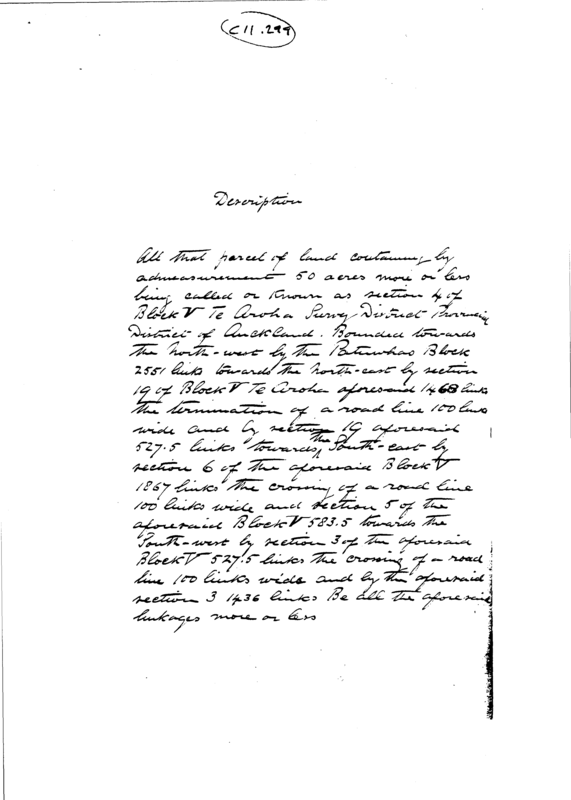 C11.299
Description
All that parcel of land containing by
admeasurement 50 acres more or less
being called or known as section 4 of
Block V Te Aroha Survey District
District of Auckland. Bounded towards
the North-west by the Block
2551 links towards the North-east by section
19 of Block V Te Aroha aforesaid 1468 links
the termination of a road line 100 links
wide and by section 19 aforesaid
527.5 links towards the South-east by
section 6 of the aforesaid Block V
1867 links the crossing of a road line
100 links wide and section 5 of the
aforesaid Block V 583.5 towards the
South-west by section 3 of the aforesaid
Block V 527.5 links the crossing of a road
line 100 links wide and by the aforesaid
section 3 1436 links Be all the aforesaid
linkages more or less